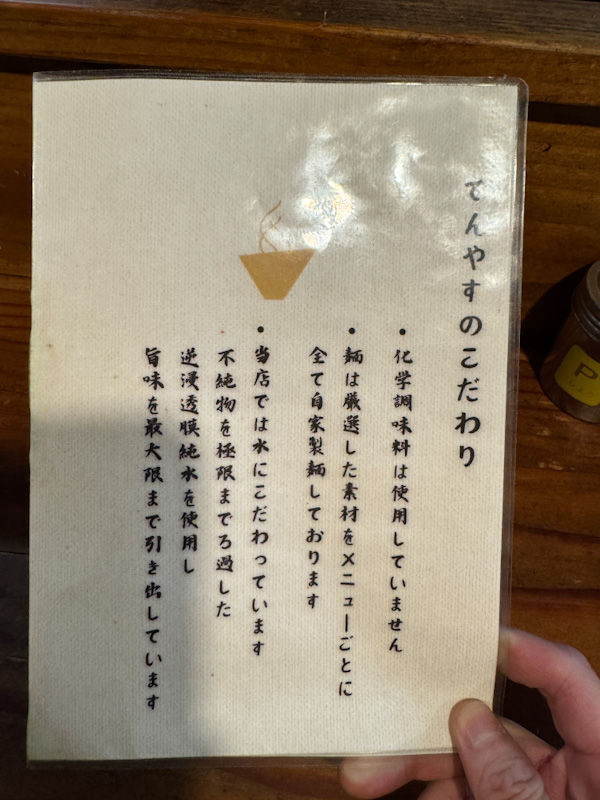 てんやすのこだわり
・化学調味料は使用していません
・麺は厳選した素材をメニューごとに
全て自家製麺しております
・当店では水にこだわっています
不純物を極限までろ過した
逆浸透膜純水を使用し
旨味を最大限まで引き出しています
P